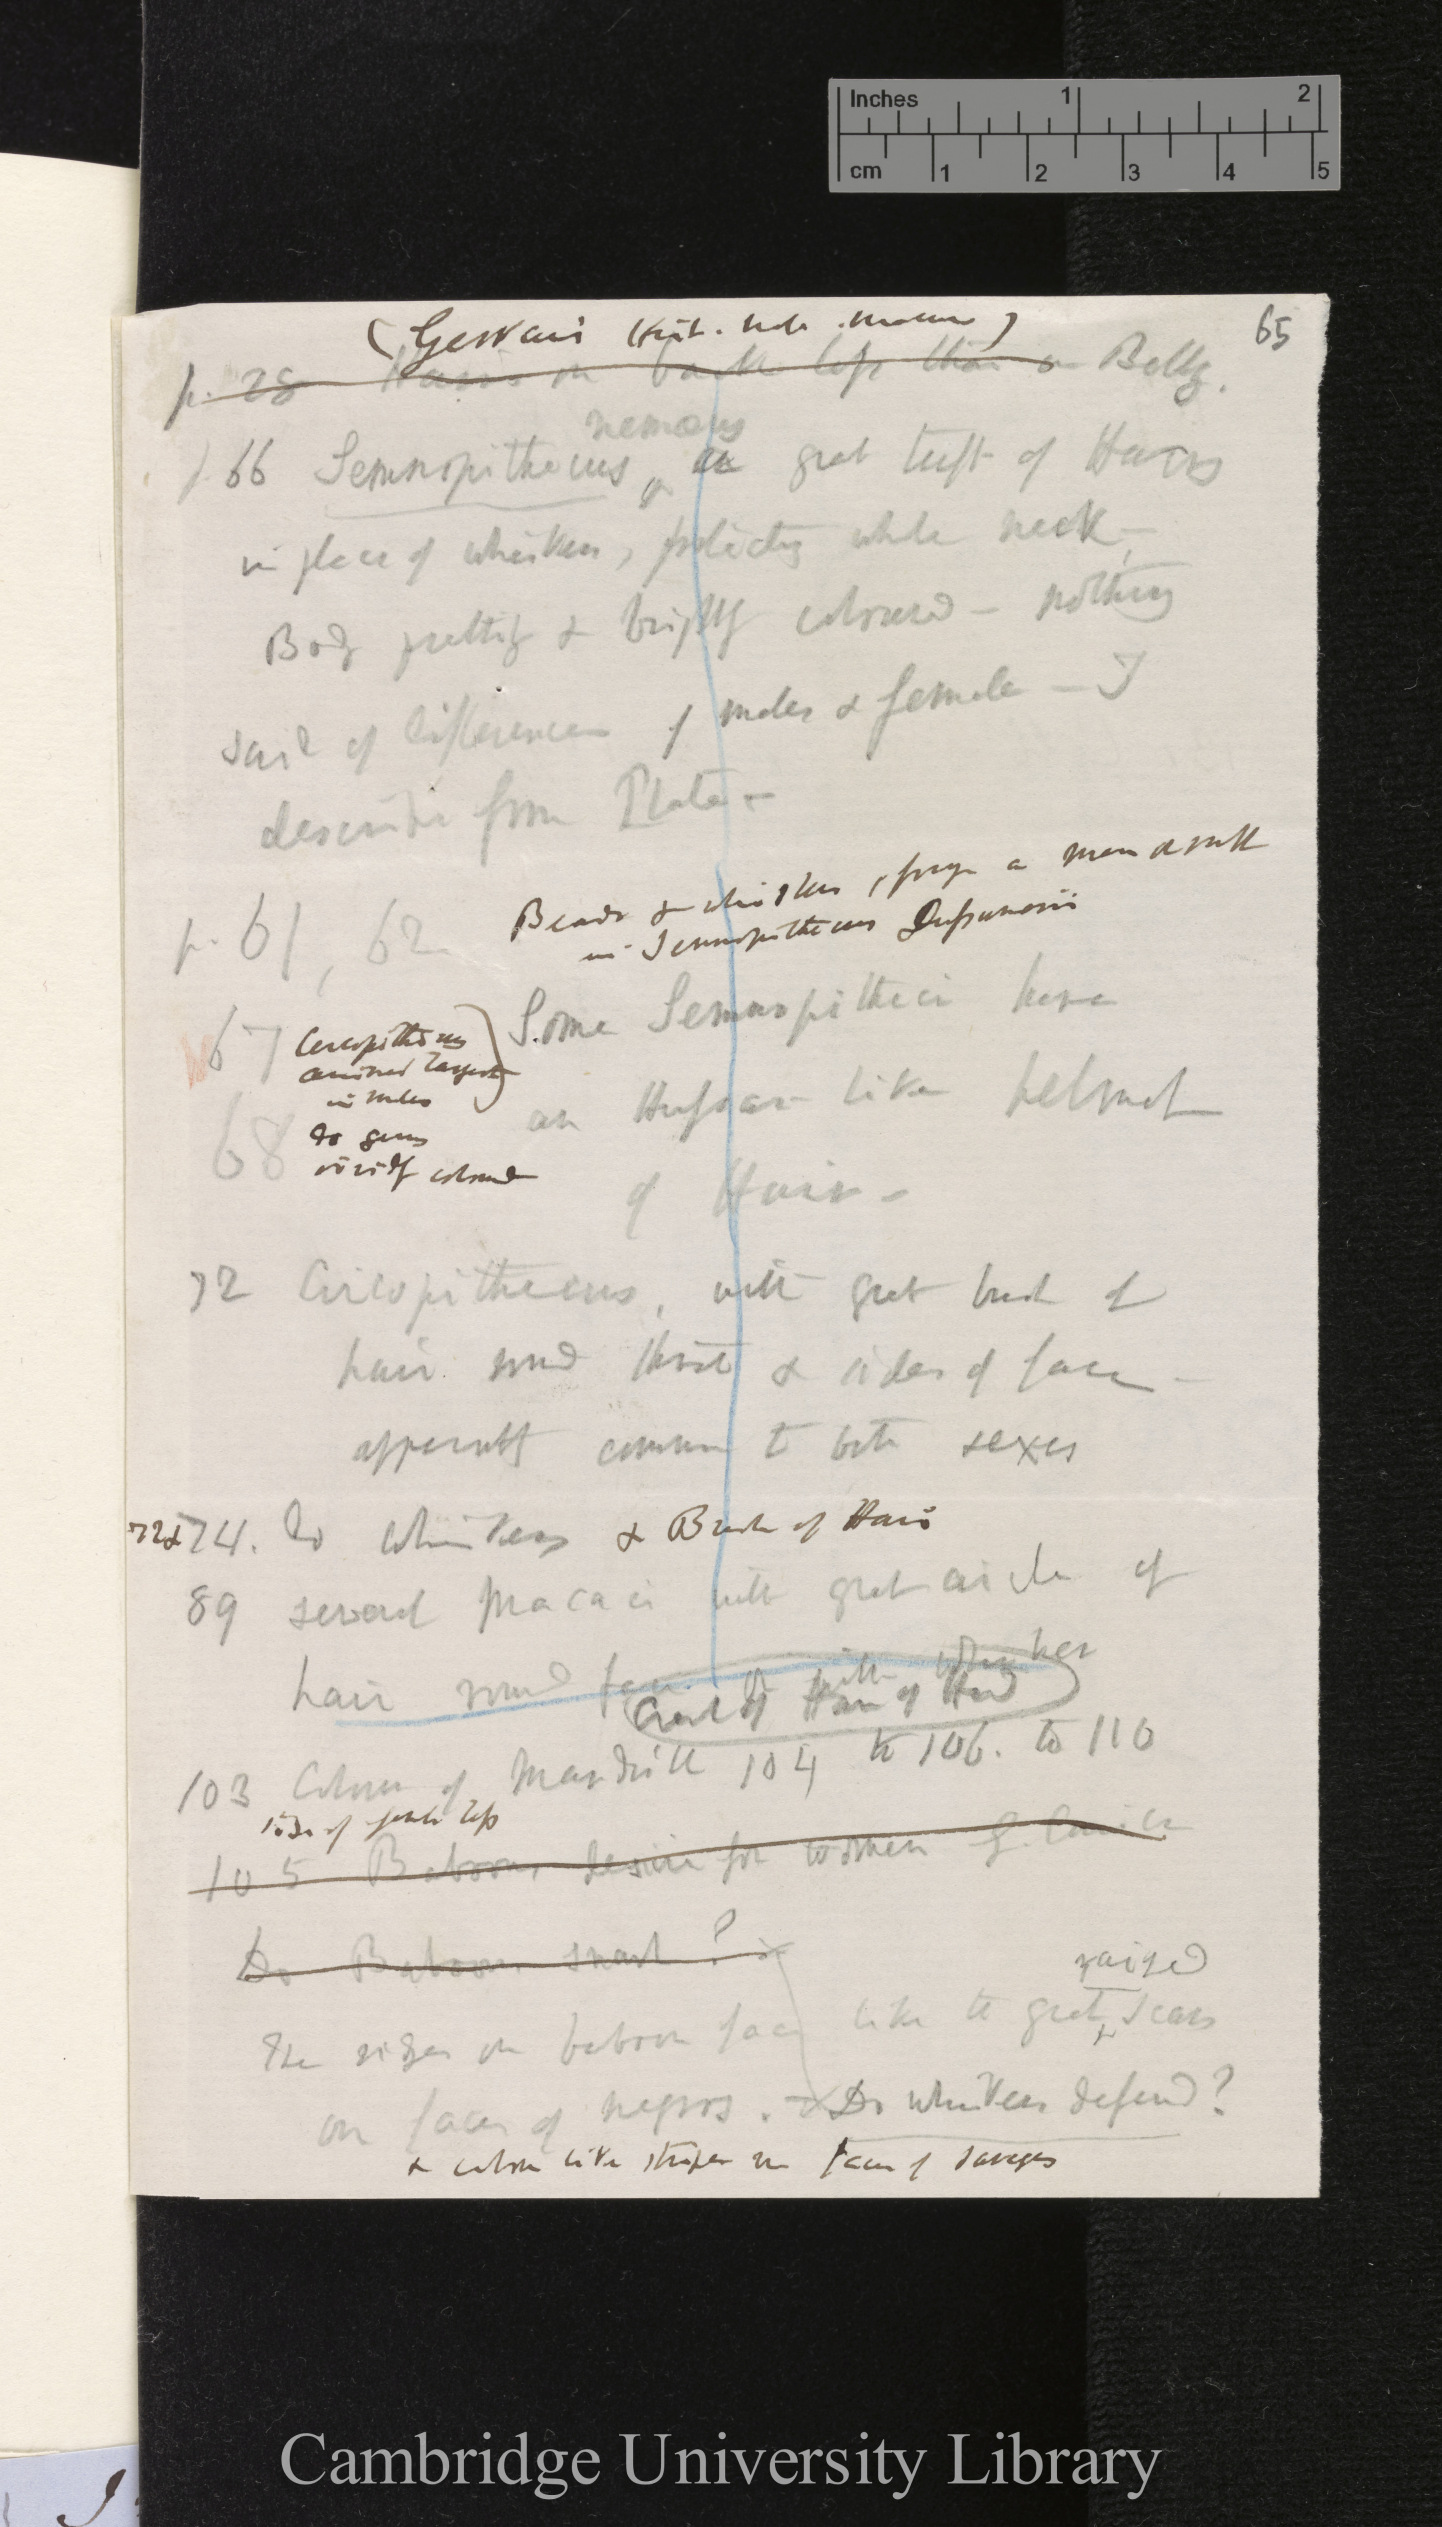 Inches 1 2
cm 1 2 3 4 5
65
(Gervais Hist. Nat. Mamm)
p. 28 Hairs on back less than on Belly.
p 66 Semnopithecus nemæus, great tuft of Hairs
in place of whiskers, protecting whole neck —
Body prettily & brightly coloured — nothing
said of differences of males & female — I
describe from Plate —
p. 61, 62
Beard & whiskers, fringe
in Semnopithecus Dussumerii
67 Cercopithecus
canines larger
in males
68 do genus
vividly coloured
Some Semnopitheci have
an Hussar like helmet
of Hair —
72 Cercopithecus, with great brush of
hair round throat & sides of face —
apparently common to both sexes
72 & 74. do whiskers & Brush of Hair
89 several Macaci with great circle of
hair round face & with whiskers
Crest of Hair of Head
103 Colour of Mandrill 104 to 106. to 110
side of female less
105 Baboons desire for women
Do Baboons snarl?
The ridges on baboon face like the great raised scars
on faces of negros. — Do whiskers defend?
& colour like stripes on faces of savages
Cambridge University Library